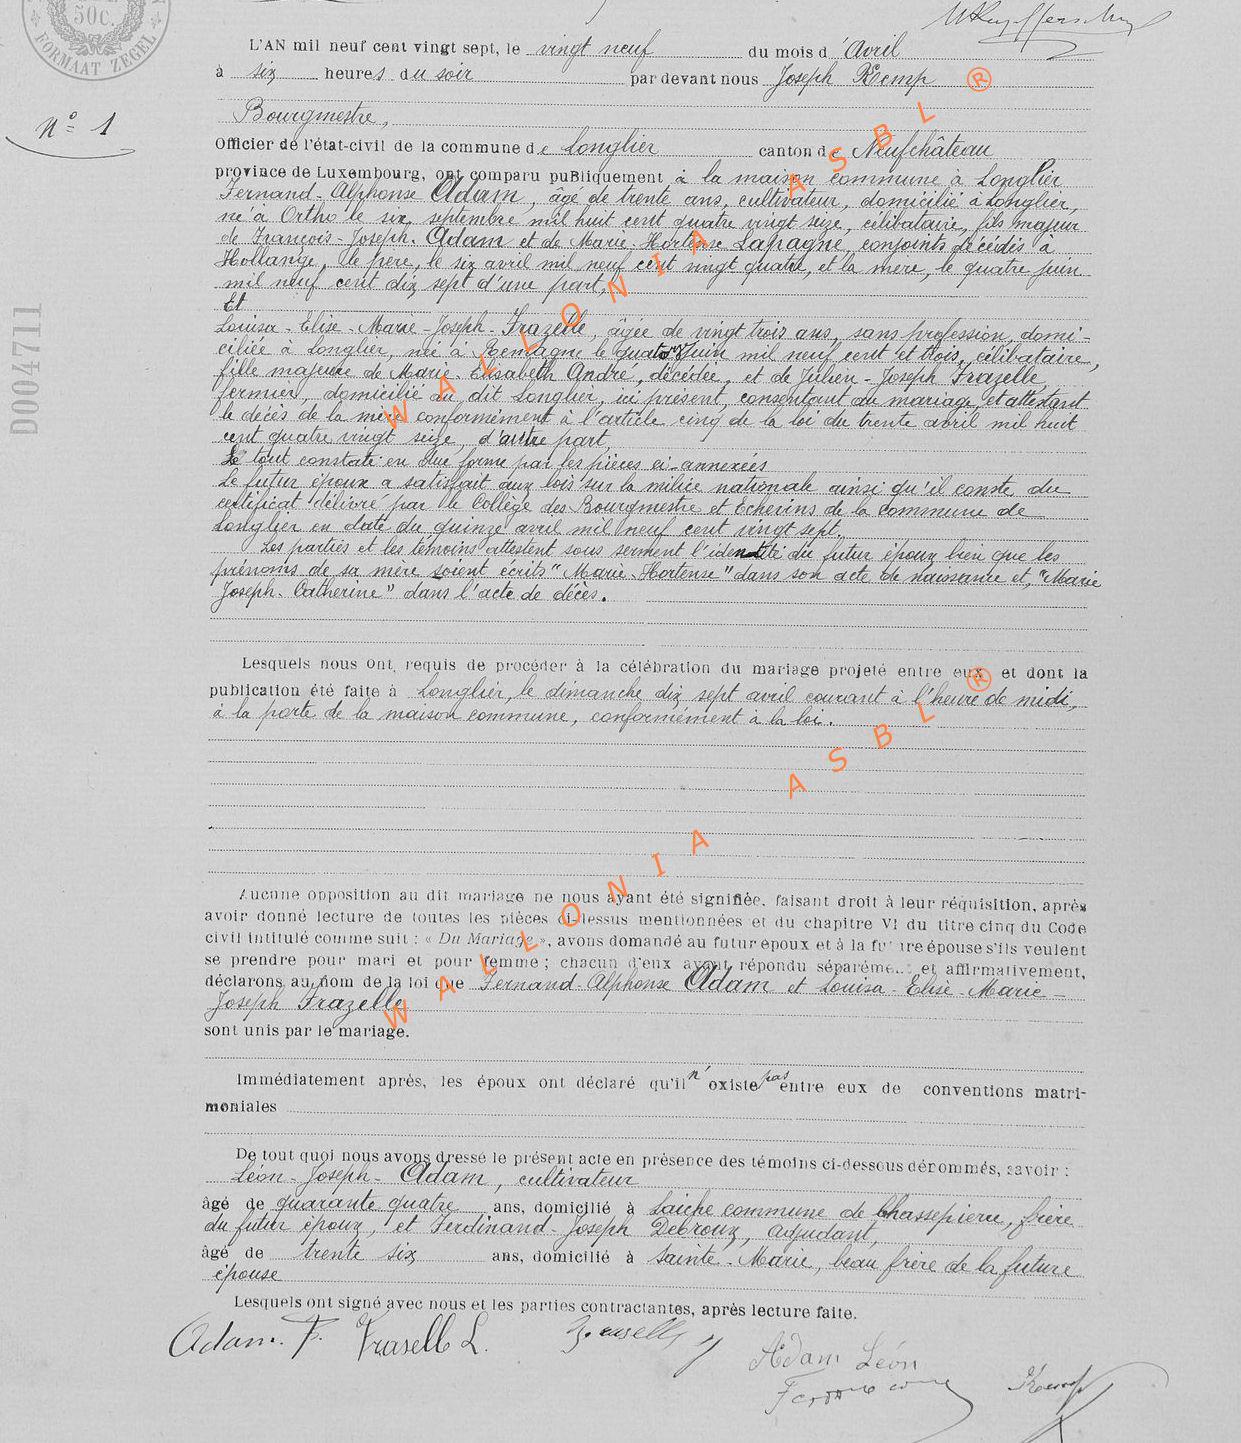 50c.
FORMAAT ZEGEL
L'AN mil neuf cent vingt sept, le vingt neuf du mois d'Avril
à six heures du soir par devant nous Joseph Kemp
Bourgmestre,
n° 1
Officier de l'état-civil de la commune de Longlier canton de Neufchâteau
province de Luxembourg, ont comparu publiquement à la maison commune à Longlier
Fernand-Alphonse Adam, âgé de trente ans, cultivateur, domicilié à Longlier,
né à Ortho le six septembre mil huit cent quatre vingt seize, célibataire, fils majeur
de François-Joseph Adam et de Marie-Hortense Lapagne, conjoints décédés à
Hollange, le père, le six avril mil neuf cent vingt quatre, et la mère, le quatre juin
mil neuf cent dix sept d'une part,
Et
Louisa-Elise-Marie-Joseph-Frazelle, âgée de vingt trois ans, sans profession, domi-
ciliée à Longlier, née à Remagne le quatre Juin mil neuf cent et trois, célibataire,
fille majeure de Marie-Elisabeth André, décédée, et de Julien-Joseph Frazelle,
fermier, domicilié au dit Longlier, ici présent, consentant au mariage, et attestant
le décès de la mère conformément à l'article cinq de la loi du trente avril mil huit
cent quatre vingt seize, d'autre part,
Le tout constaté en due forme par les pièces ci-annexées
Le futur époux a satisfait aux lois sur la milice nationale ainsi qu'il conste du
certificat délivré par le Collège des Bourgmestre et Echevins de la commune de
Longlier en date du quinze avril mil neuf cent vingt sept.
Les parties et les témoins attestent sous serment l'identité du futur époux bien que les
prénoms de sa mère soient écrits "Marie-Hortense" dans son acte de naissance et, "Marie
Joseph-Catherine" dans l'acte de décès.
D004711
Lesquels nous ont requis de procéder à la célébration du mariage projeté entre eux et dont la
publication été faite à Longlier, le dimanche dix sept avril courant à l'heure de midi,
à la porte de la maison commune, conformément à la loi.
Aucune opposition au dit mariage ne nous ayant été signifiée, faisant droit à leur réquisition, après
avoir donné lecture de toutes les pièces ci-dessus mentionnées et du chapitre VI du titre cinq du Code
civil intitulé comme suit : « Du Mariage », avons demandé au futur époux et à la future épouse s'ils veulent
se prendre pour mari et pour femme ; chacun d'eux ayant répondu séparément et affirmativement,
déclarons au nom de la loi que Fernand-Alphonse Adam et Louisa-Elise-Marie-
Joseph Frazelle
sont unis par le mariage.
Immédiatement après, les époux ont déclaré qu'il n'existe pas entre eux de conventions matri-
moniales
De tout quoi nous avons dressé le présent acte en présence des témoins ci-dessous dénommés, savoir :
Léon-Joseph-Adam, cultivateur
âgé de quarante quatre ans, domicilié à Laiche commune de Chassepierre, frère
du futur époux, et Ferdinand-Joseph Debroux, adjudant,
âgé de trente six ans, domicilié à Sainte-Marie, beau frère de la future
épouse
Lesquels ont signé avec nous et les parties contractantes, après lecture faite.
Adam. F. Fraselle L.
Adam Léon
Kemp
WALLONIA ASBL ®
WALLONIA ASBL ®